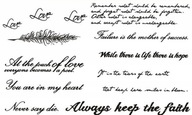 Love
Love
Love
Remember what should be remembered,
and forget what should be forgotten.
Alter what is changeable,
and accept what is unchangeable.
Failure is the mother of success.
At the touch of love
everyone becomes a poet.
While there is life there is hope
You are in my heart
If in the
that keep love
Never say die.
Always keep the faith